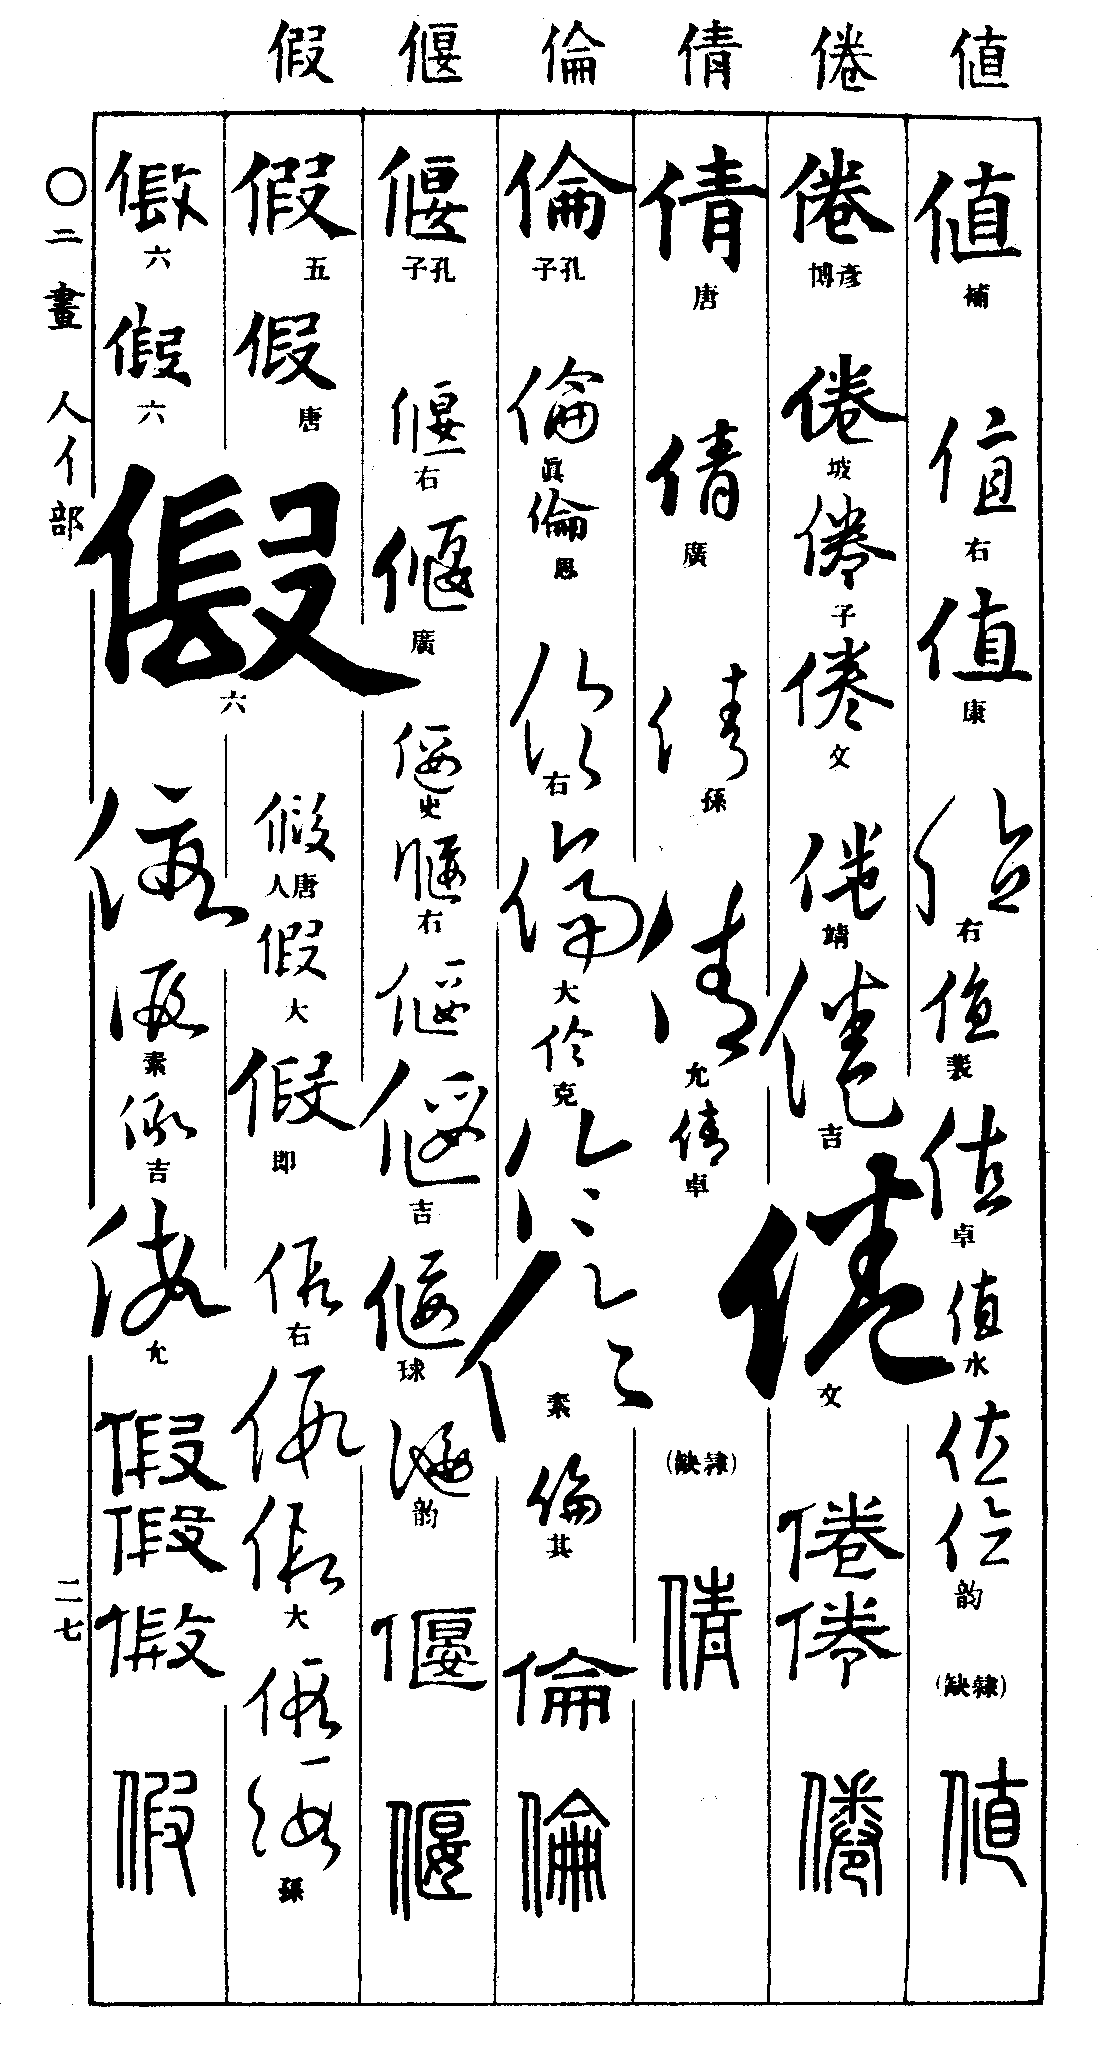 值 倦 倩 倫 偃 假
值 補
值 右
值 康
值 右
值 裴
值 卓
值 水
值
值 韵
(隸缺)
值
倦 彥博
倦 坡
倦 子
倦 文
倦 靖
倦 吉
倦 文
倦
倦
倦
倩 唐
倩 廣
倩 孫
倩 允
倩 卓
(隸缺)
倩
倫 孔子
倫 眞
倫 恩
倫 右
倫 大
倫 克
倫
倫 素
倫 其
倫
倫
偃 孔子
偃 右
偃 廣
偃 史
偃 右
偃
偃 吉
偃 球
偃 韵
偃
偃
假 五
假 唐
假 六
假 唐人
假 大
假 即
假 右
假
假 大
假
假 孫
假 六
假 六
假
假 素
假 吉
假 允
假
假
假
假
〇二畫 人亻部
二七